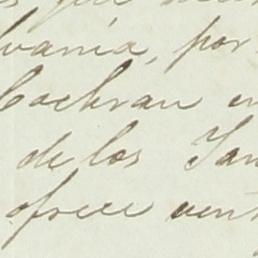 que
vania, por
Cochran en
de los San
ofrece vent